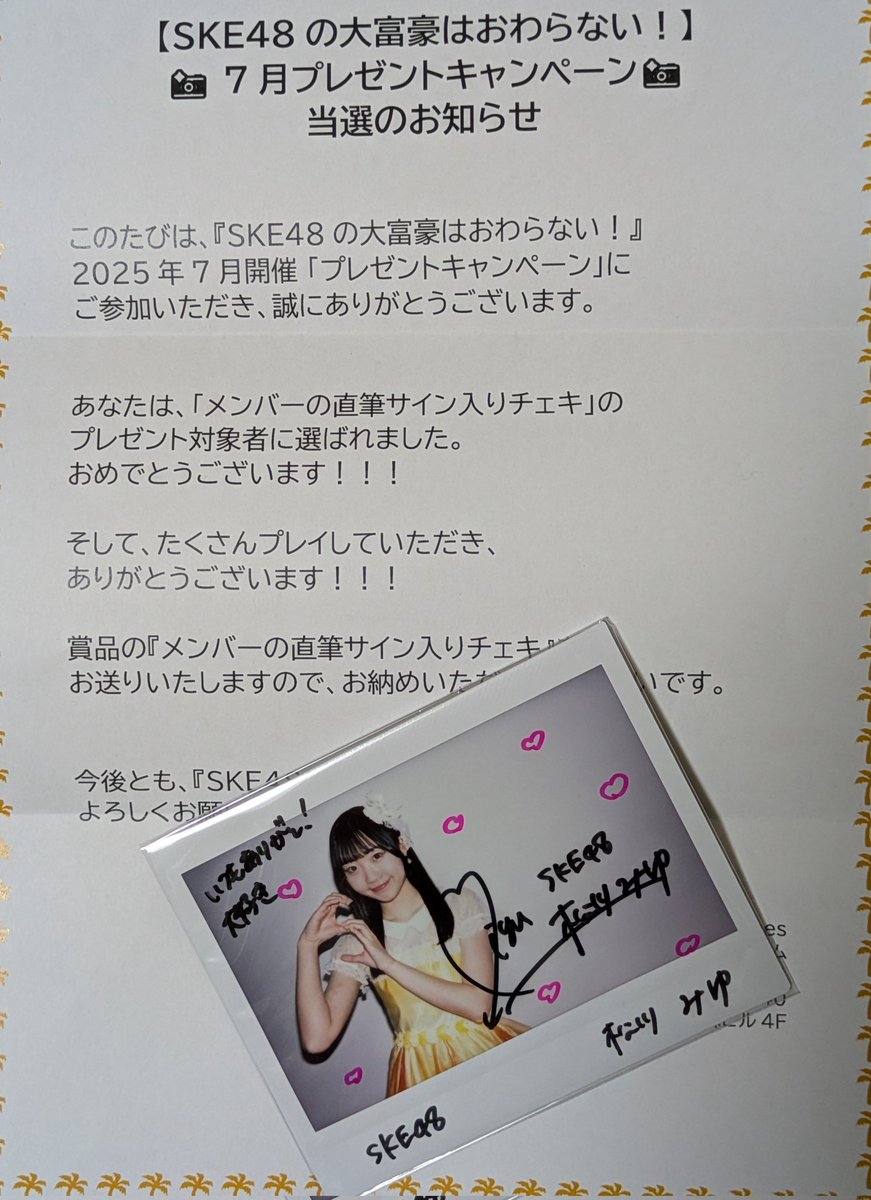 【SKE48の大富豪はおわらない！】
7月プレゼントキャンペーン
当選のお知らせ
このたびは、『SKE48の大富豪はおわらない！』
2025年7月開催「プレゼントキャンペーン」に
ご参加いただき、誠にありがとうございます。
あなたは、「メンバーの直筆サイン入りチェキ」の
プレゼント対象者に選ばれました。
おめでとうございます！！！
そして、たくさんプレイしていただき、
ありがとうございます！！！
賞品の『メンバーの直筆サイン入りチェキ』
お送りいたしますので、お納めいただ いです。
今後とも、『SKE48
よろしくお願
いつもありがと!
大好き
SKE48
SKE48
es
ビル 4F